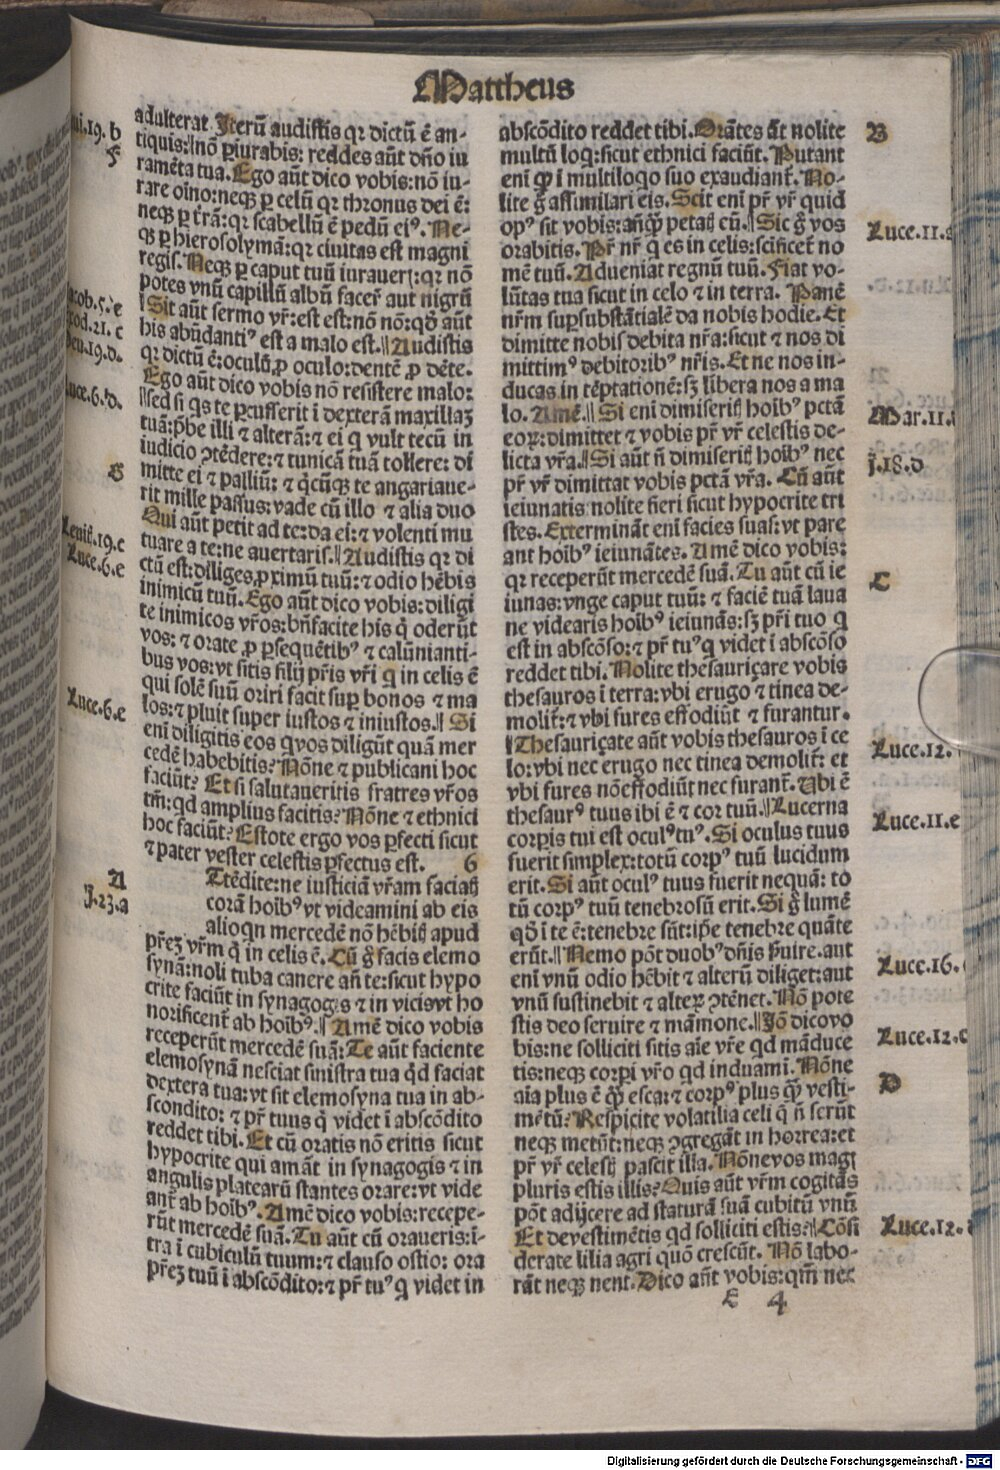 Mattheus
ui.19.b
f
acob.5.e
rod.21.c
eu.19.d.
uce.6.d.
G
Leuit.19.c
Luce.6.e
Luce.6.e
A
J.23.a
adulterat. Iterū audistis qꝛ dictū ē an-
tiquis: nō ꝑiurabis: reddes aūt dño iu
ramēta tua. Ego aūt dico vobis: nō iu-
rare oīno: neqꝫ ꝑ celū qꝛ thronus dei ē:
neqꝫ ꝑ t̄rā: qꝛ scabellū ē pedū eiꝰ. Ne-
qꝫ ꝑ hierosolymā: qꝛ ciuitas est magni
regis. Neqꝫ ꝑ caput tuū iuraueꝛ: qꝛ nō
potes vnū capillū albū faceꝛ aut nigrū
Sit aūt sermo vr̄: est est: nō nō: qd̄ aūt
his abūdantiꝰ est a malo est. Audistis
qꝛ dictū ē: oculū ꝓ oculo: dentē ꝓ dēte.
Ego aūt dico vobis nō resistere malo:
sed si qs te ꝑcusserit ī dexterā maxillaꝫ
tuā: p̄be illi ⁊ alterā: ⁊ ei q vult tecū in
iudicio ꝯtēdere: ⁊ tunicā tuā tollere: di
mitte ei ⁊ palliū: ⁊ q̄cūqꝫ te angariaue-
rit mille passus: vade cū illo ⁊ alia duo
Qui aūt petit ad te: da ei: ⁊ volenti mu
tuare a te: ne auertaris. Audistis qꝛ di
ctū est: diliges ꝓximū tuū: ⁊ odio hēbis
inimicū tuū. Ego aūt dico vobis: diligi
te inimicos vr̄os: bn̄facite his q̇ oderūt
vos: ⁊ orate ꝓ ꝑsequētibꝰ ⁊ calūnianti-
bus vos: vt sitis filij pr̄is vr̄i q̇ in celis ē
qui solē suū oriri facit suꝑ bonos ⁊ ma
los: ⁊ pluit super iustos ⁊ iniustos. Si
enī diligitis eos qvos diligūt quā mer
cedē habebitis? Nōne ⁊ publicani hoc
faciūt? Et si salutaueritis fratres vr̄os
tm̄: qd amplius facitis? Nōne ⁊ ethnici
hoc faciūt? Estote ergo vos ꝑfecti sicut
⁊ pater vester celestis ꝑfectus est. 6
Ttēdite: ne iusticiā vr̄am faciatꝭ
corā hoībꝰ vt videamini ab eis
alioqn mercedē nō hēbitꝭ apud
pr̄eꝫ vr̄m q̇ in celis ē. Cū g̊ facis elemo
synā: noli tuba canere añ te: sicut hypo
crite faciūt in synagogꝭ ⁊ in vicis vt ho
norificent̄ ab hoībꝰ. Amē dico vobis
receperūt mercedē suā: Te aūt faciente
elemosynā nesciat sinistra tua qd faciat
dextera tua: vt sit elemosyna tua in ab-
scondito: ⁊ pr̄ tuus q̇ videt ī abscōdito
reddet tibi. Et cū oratis nō eritis sicut
hypocrite qui amāt in synagogis ⁊ in
angulis platearū stantes orare: vt vide
ant̄ ab hoībꝰ. Amē dico vobis: recepe-
rūt mercedē suā. Tu aūt cū oraueris: i-
tra ī cubiculū tuum: ⁊ clauso ostio: ora
pr̄eꝫ tuū ī abscōdito: ⁊ pr̄ tuꝰ q̇ videt in
abscōdito reddet tibi. Orātes aūt nolite
multū loq: sicut ethnici faciūt. Putant
enī qꝙ ī multiloqo suo exaudiant̄. No-
lite g̊ assimilari eis. Scit enī pr̄ vr̄ quid
opꝰ sit vobis: anq̄ꝫ petatꝭ eū. Sic g̊ vos
orabitis. Pr̄ nr̄ q es in celis: scificet̄ no
mē tuū. Adueniat regnū tuū. Fiat vo-
lūtas tua sicut in celo ⁊ in terra. Panē
nr̄m suꝑsubstātialē da nobis hodie. Et
dimitte nobis debita nr̄a: sicut ⁊ nos di
mittimꝰ debitoribꝰ nr̄is. Et ne nos in-
ducas in tēptationē: sꝫ libera nos a ma
lo. Amē. Si enī dimiseritꝭ hoībꝰ pctā
eoꝝ: dimittet ⁊ vobis pr̄ vr̄ celestis de-
licta vr̄a. Si aūt n̄ dimiseritꝭ hoībꝰ nec
pr̄ vr̄ dimittat vobis pctā vr̄a. Cū aūt
ieiunatis: nolite fieri sicut hypocrite tri
stes. Extermināt enī facies suas: vt pare
ant hoībꝰ ieiunātes. Amē dico vobis:
qꝛ receperūt mercedē suā. Tu aūt cū ie
iunas: vnge caput tuū: ⁊ faciē tuā laua
ne videaris hoībꝰ ieiunās: sꝫ pr̄i tuo q
est in abscōso: ⁊ pr̄ tuꝰ q videt ī abscōso
reddet tibi. Nolite thesauriçare vobis
thesauros ī terra: vbi erugo ⁊ tinea de-
molit̄: ⁊ vbi fures effodiūt ⁊ furantur.
Thesauriçate aūt vobis thesauros ī ce
lo: vbi nec erugo nec tinea demolit̄: et
vbi fures nō effodiūt nec furant̄. Ubi ē
thesaurꝰ tuus ibi ē ⁊ cor tuū. Lucerna
corꝑis tui est oculꝰ tuꝰ. Si oculus tuus
fuerit simplex: totū corpꝰ tuū lucidum
erit. Si aūt oculꝰ tuus fuerit nequā: to
tū corpꝰ tuū tenebrosū erit. Si g̊ lumē
qd̄ ī te ē: tenebre sūt: ip̄e tenebre quāte
erūt. Nemo pōt duobꝰ dn̄is ẜuire. aut
enī vnū odio hēbit ⁊ alterū diliget: aut
vnū sustinebit ⁊ alteꝝ ꝯtēnet. Nō pote
stis deo seruire ⁊ māmone. Iō dico vo
bis: ne solliciti sitis aīe vr̄e qd māduce
tis: neqꝫ corꝑi vr̄o qd induamī. Nōne
aīa plus ē q̄ꝫ esca: ⁊ corpꝰ plus q̄ꝫ vesti-
mētū? Respicite volatilia celi q̇ n̄ serūt
neqꝫ metūt: neqꝫ ꝯgregāt in horrea: et
pr̄ vr̄ celestꝭ pascit illa. Nōne vos magꝭ
pluris estis illis? Quis aūt vr̄m cogitās
pōt adijcere ad staturā suā cubitū vnū
Et de vestimētis qd solliciti estis? Cōsi
derate lilia agri quō crescūt. Nō labo-
rāt neqꝫ nent. Dico aūt vobis: qm̄ nec
E 4
B
Luce.11.a
Mar.11.
j.18.d
C
Luce.12.
Luce.11.e
Luce.16.
Luce.12.c
D
Luce.12.
Digitalisierung gefördert durch die Deutsche Forschungsgemeinschaft - DFG